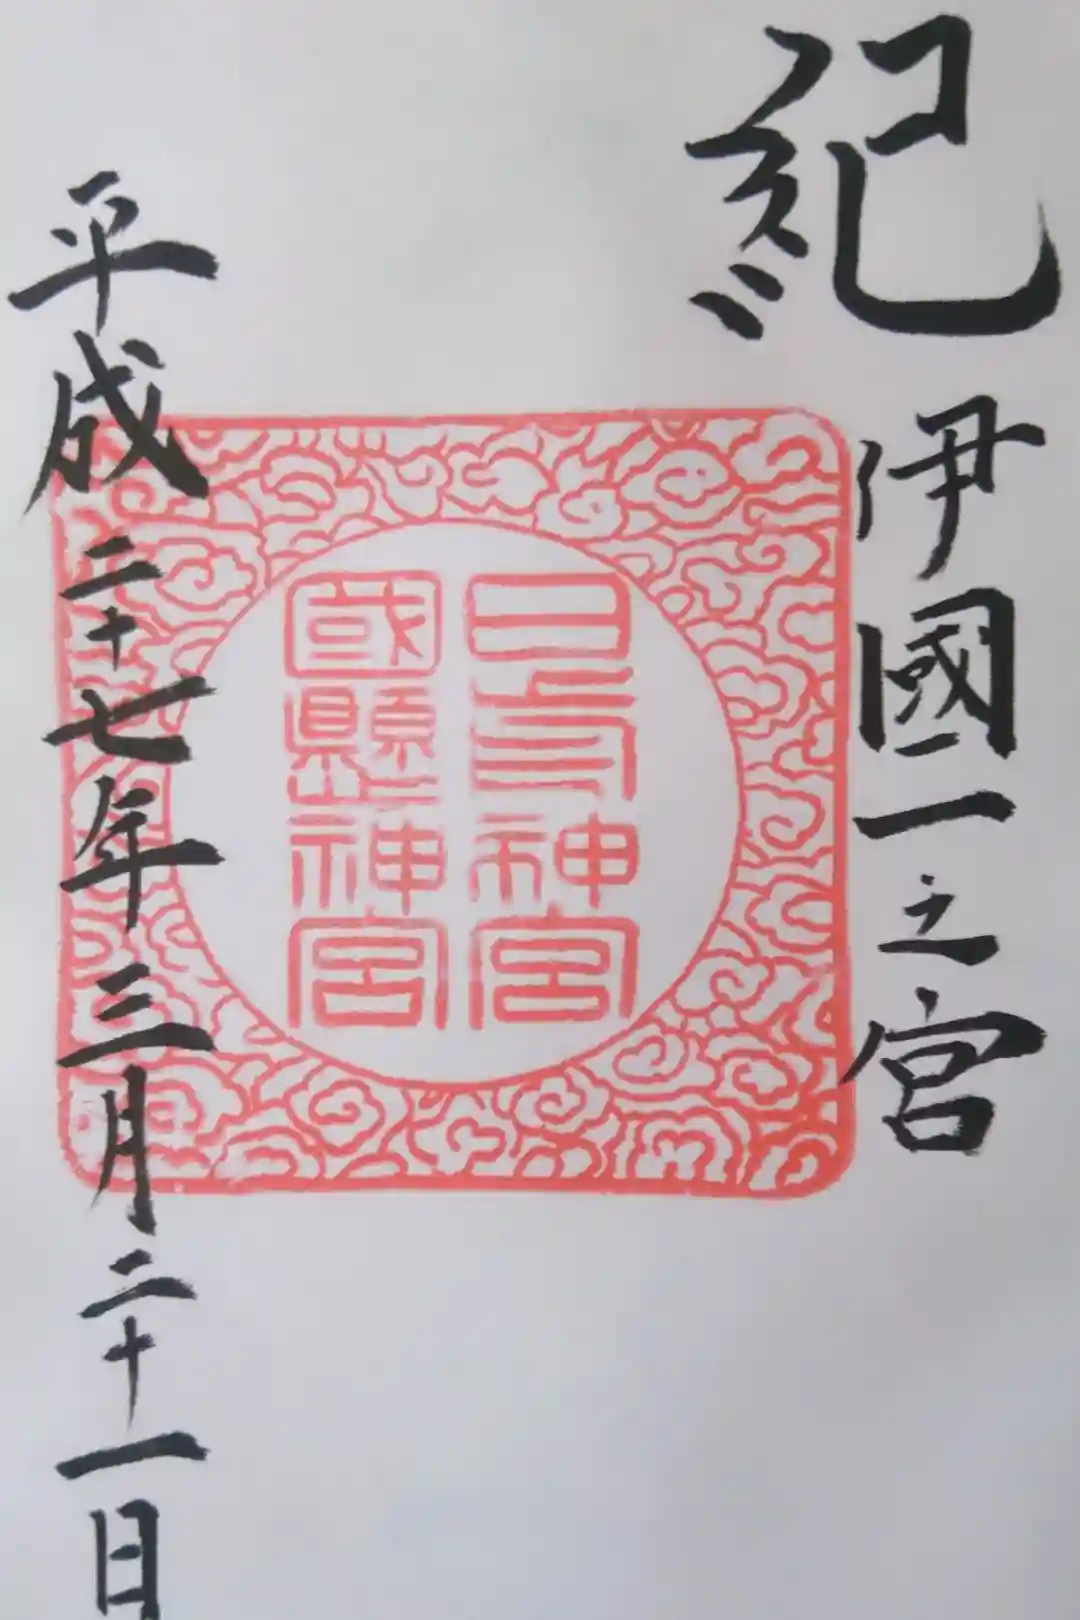 紀伊國一之宮
日前神宮
國懸神宮
平成二十七年三月二十一日